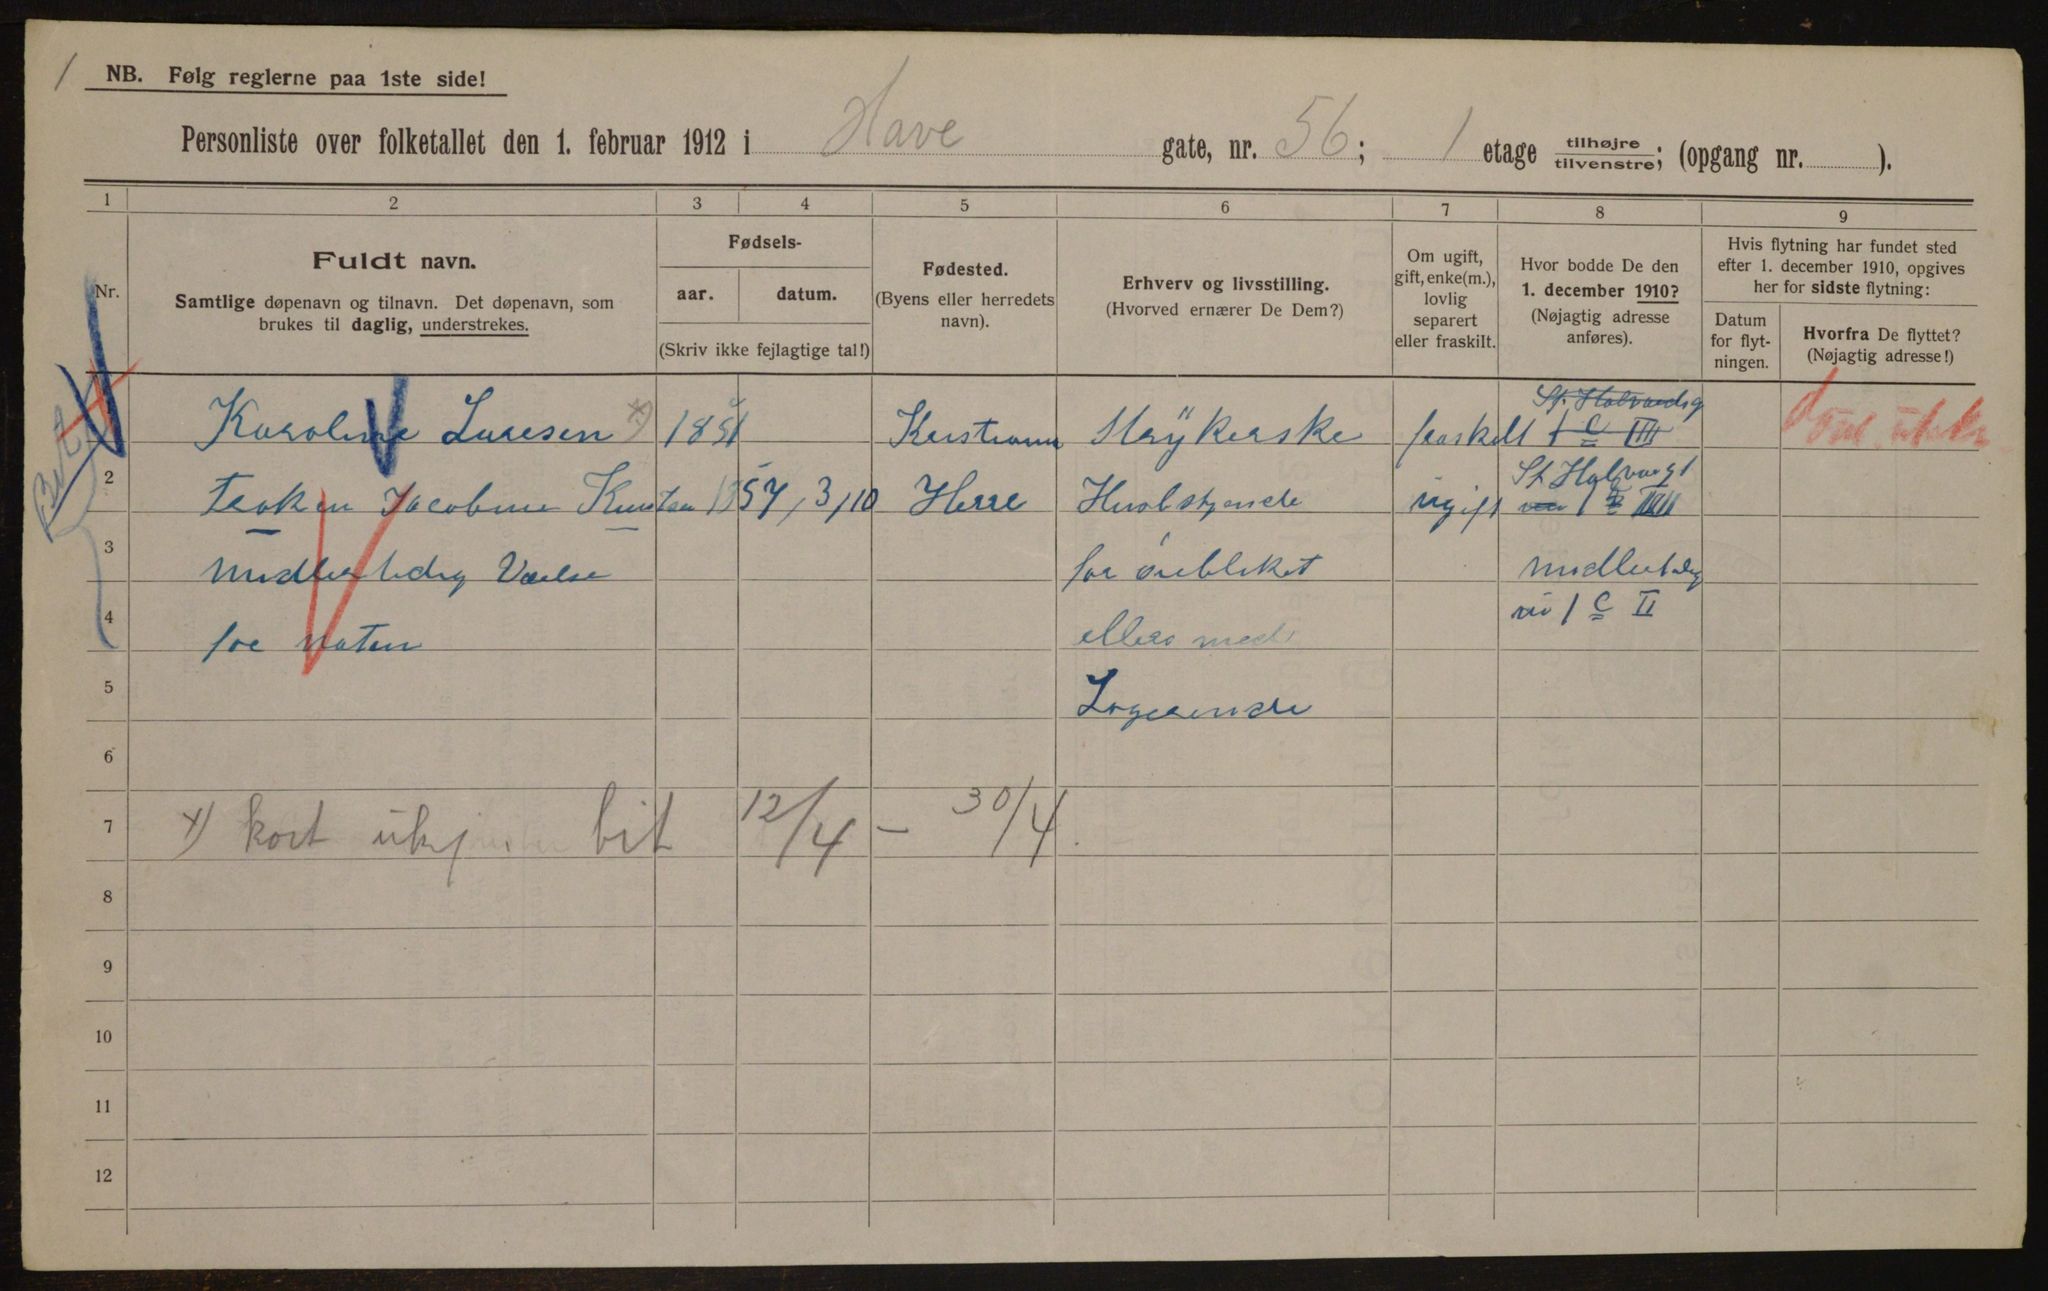 1
NB. Følg reglerne paa 1ste side!
Personliste over folketallet den 1. februar 1912 i Have gate, nr. 56; 1 etage tilhøjre/tilvenstre; (opgang nr. ).
1 2 3 4 5 6 7 8 9
Nr.
Fuldt navn.
Samtlige døpenavn og tilnavn. Det døpenavn, som
brukes til daglig, understrekes.
Fødsels-
aar. datum.
(Skriv ikke fejlagtige tal!)
Fødested.
(Byens eller herredets
navn).
Erhverv og livsstilling.
(Hvorved ernærer De Dem?)
Om ugift,
gift, enke(m.),
lovlig
separert
eller fraskilt.
Hvor bodde De den
1. december 1910?
(Nøjagtig adresse
anføres).
Hvis flytning har fundet sted
efter 1. december 1910, opgives
her for sidste flytning:
Datum
for flyt-
ningen.
Hvorfra De flyttet?
(Nøjagtig adresse!)
St. Halvardsg
Karoline Laresen x) 1851 Kristiania Strykerske fraskilt 1 C IIII
St Halvargt
2 Frøken Jacobine Knutsen 1857, 3/10 Herre Husbstyende ugift 1
3 midlertidig Værelse for øiebliket midlertidig
4 for naten ellers med 1 C II
5 Logerende
6
7 x) kort ukjent bit 12/4 — 30/4
8
9
10
11
12